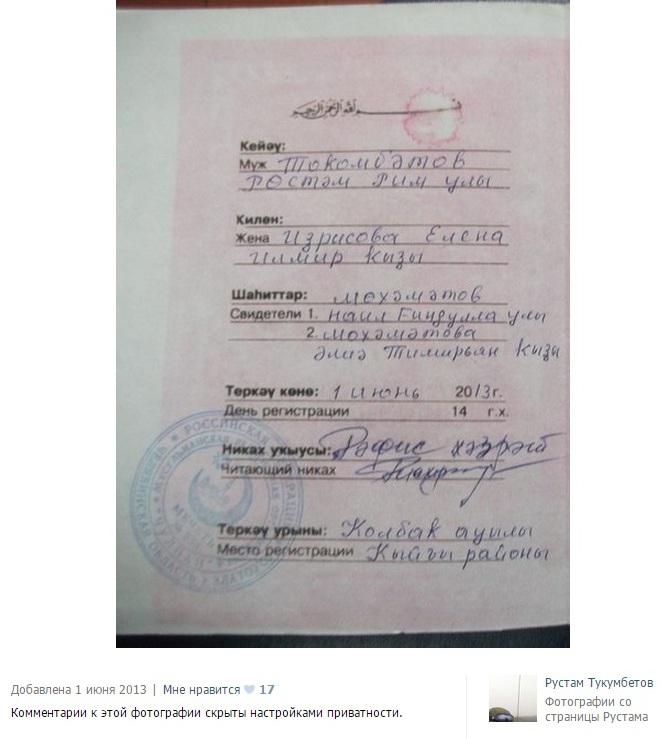 بسم الله الرحمن الرحيم
Кейәү:
Муж Токомбәтов
Рөстәм Рим улы
Килен:
Жена Изрисова Елена
Илмир кызы
Шаһиттар: Мөхәмәтов
Свидетели 1. Наил Гиндулла улы
2. Мөхәмәтова
Әлиә Тимирьян кызы
Теркәү көнө: 1 июнь 2013г.
День регистрации 14 г.х.
Никах укыусы: Рәфис хәзрәт
Читающий никах
Теркәү урыны: Колбак ауылы
Место регистрации Кыйгы районы
РОССИЙСКАЯ ФЕДЕРАЦИЯ
Добавлена 1 июня 2013 | Мне нравится 17
Комментарии к этой фотографии скрыты настройками приватности.
Рустам Тукумбетов
Фотографии со
страницы Рустама